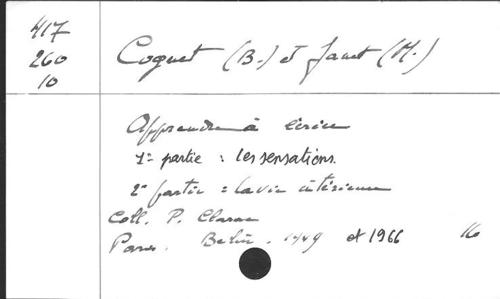 417
260
10
Coquet (B.) et Janet (M.)
Apprendre à écrire
1re partie : les sensations.
2e partie : la vie intérieure
Coll. P. Clarac
Paris. Belin. 1949 et 1966 16